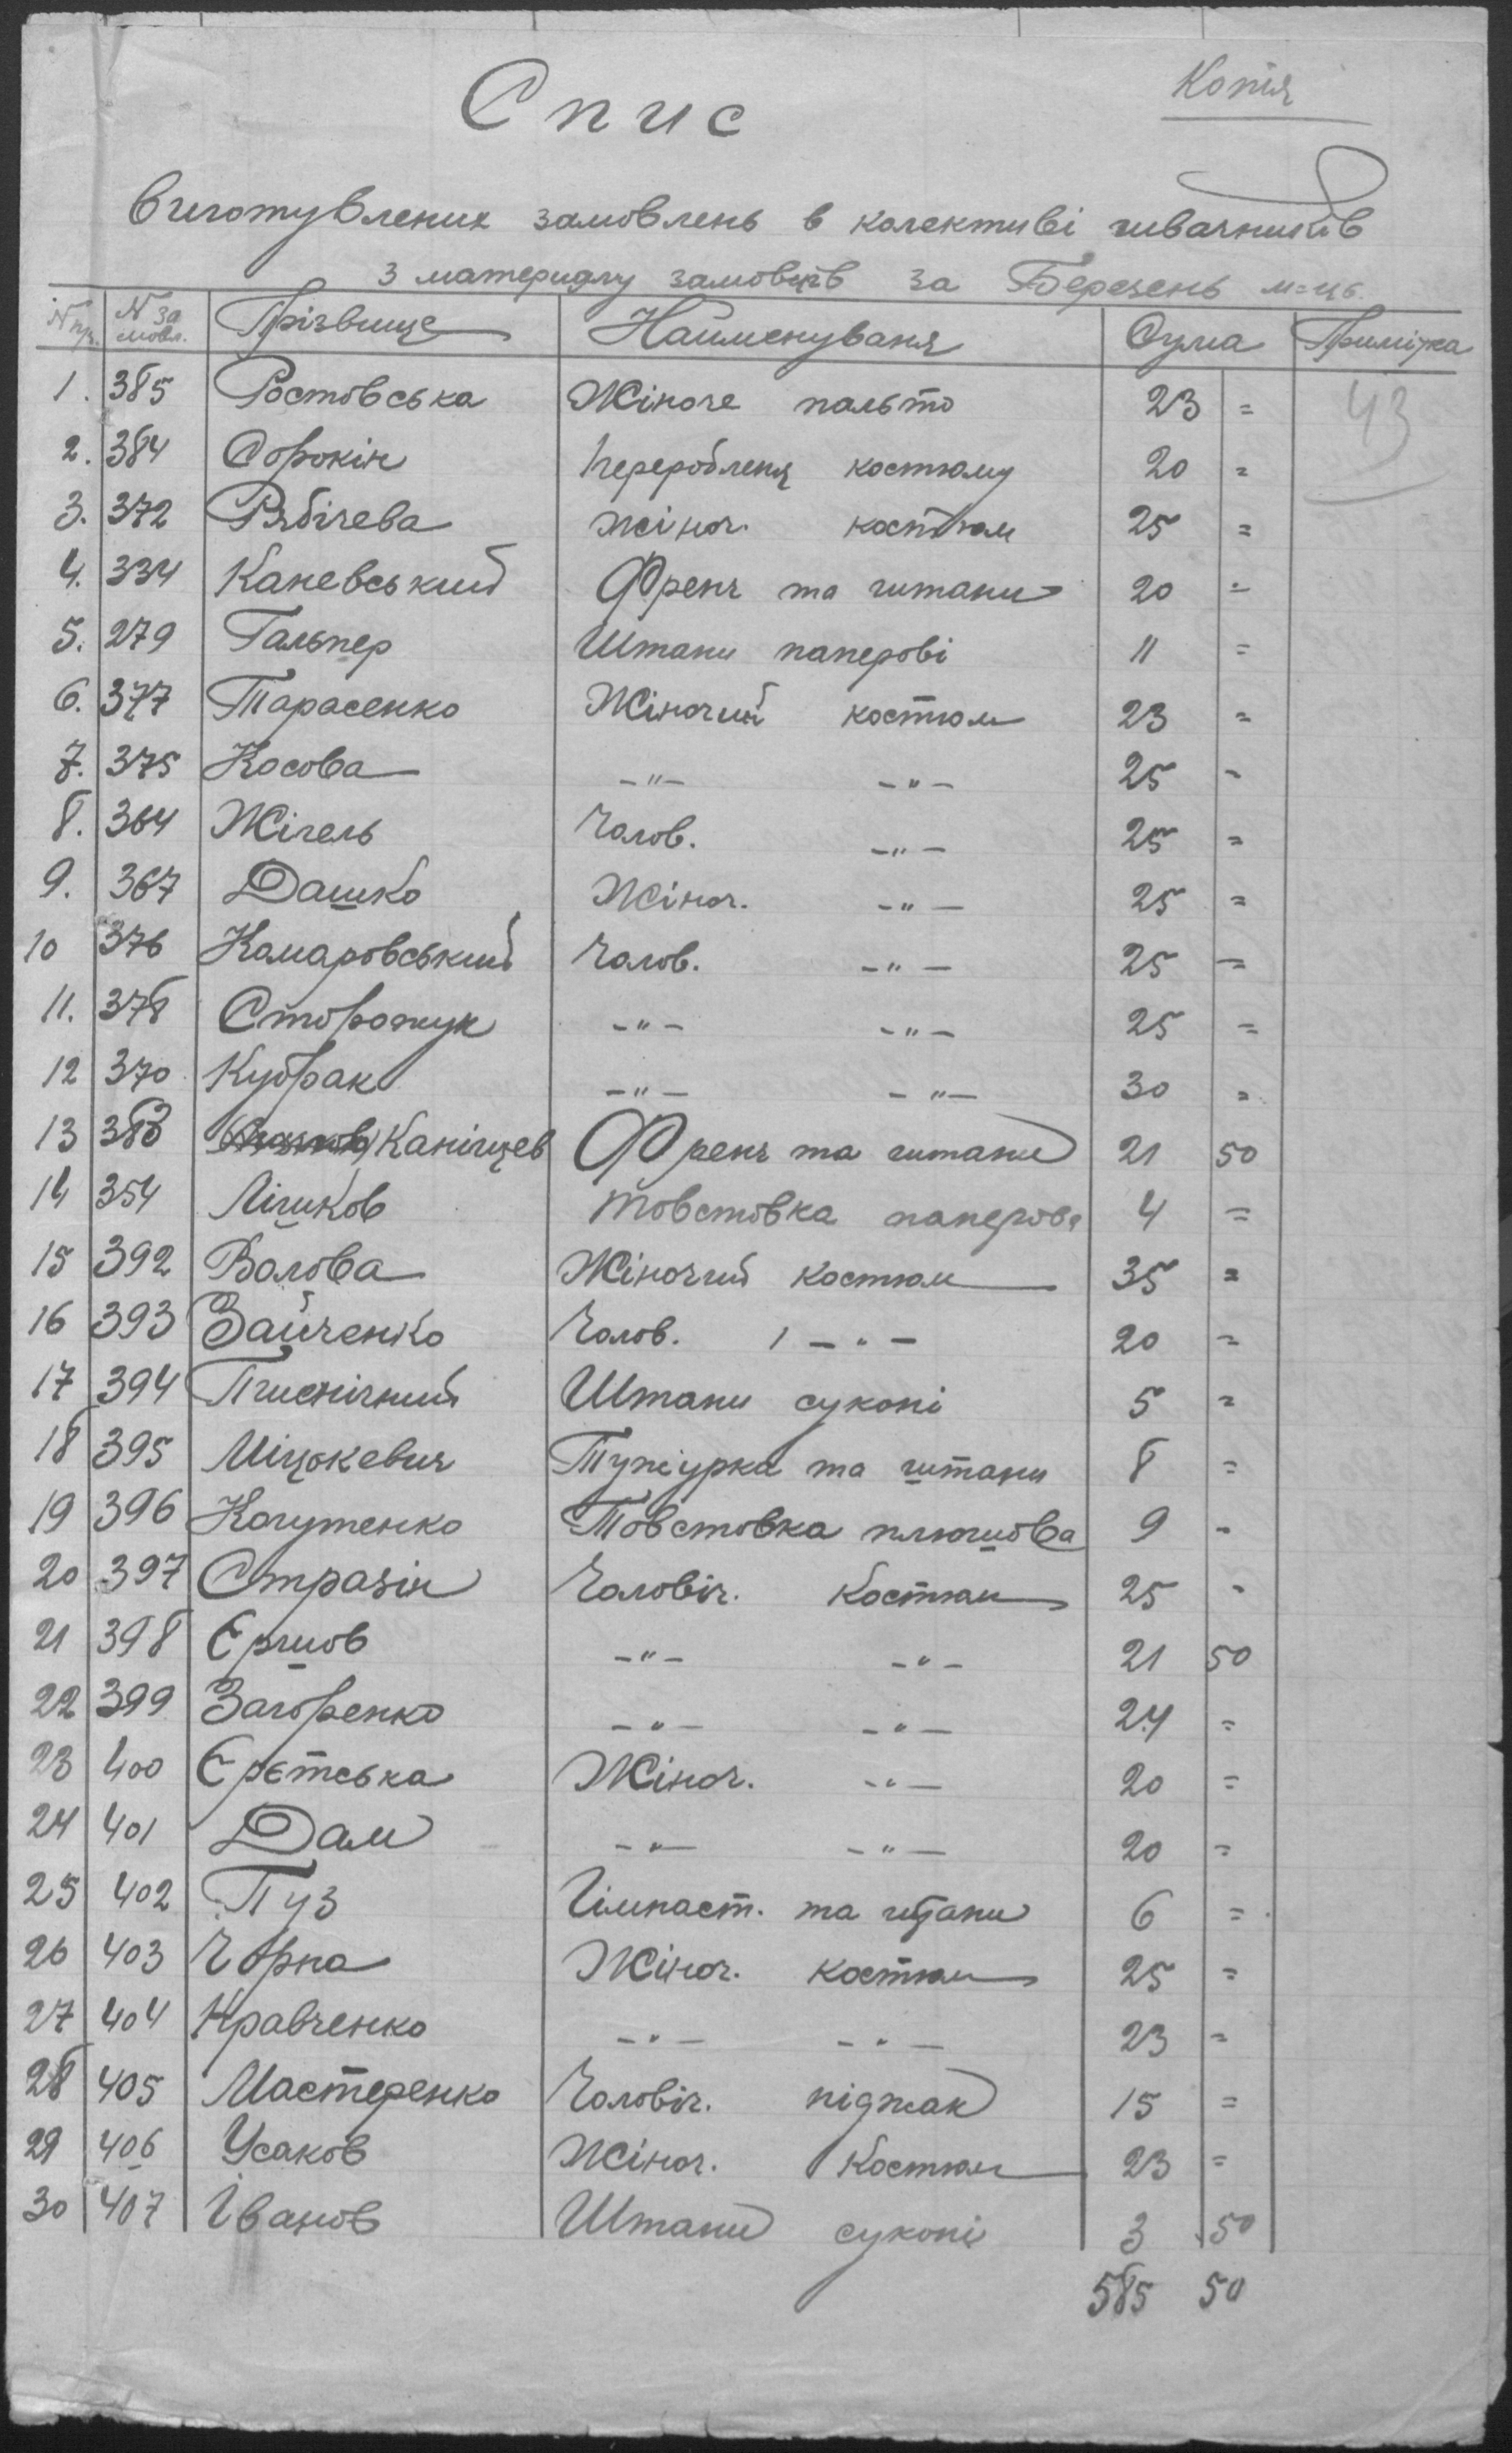 Копія
Спис
Виготувлених замовлень в колективі швачників
з материялу замовців за Березень м=ць.
N пр. N за мовл. Прізвище Найменуваня Сума Примітка
1. 385 Ростовська Жіноче пальто 23 = 43
2. 384 Сорокін Перероблення костюму 20 =
3. 372 Рябічева жіноч. костюм 25 =
4. 334 Каневський Френч та штани 20 =
5. 279 Гальпер Штани паперові 11 =
6. 377 Тарасенко Жіночий костюм 23 =
7. 375 Косова -"- -"- 25 -
8. 364 Жігель Чолов. -"- 25 =
9. 367 Дашко Жіноч. -"- 25 =
10 376 Комаровський Чолов. -"- 25 =
11. 378 Сторожук -"- -"- 25 =
12 370 Кубрак -"- -"- 30 =
13 383 Канівцев Френч та штани 21 50
14 354 Лішков Товстовка паперова 4 =
15 392 Волова Жіночий костюм 35 =
16 393 Зайченко Чолов. 1 -"- 20 =
17 394 Пшенічний Штани суконі 5 =
18 395 Міцькевич Тужурка та штани 8 =
19 396 Когутенко Товстовка плюшова 9 -
20 397 Стразін Чоловіч. Костюм 25 -
21 398 Єршов -"- -"- 21 50
22 399 Загоренко -"- -"- 24 =
23 400 Єрєтська Жіноч. -"- 20 =
24 401 Дам -"- -"- 20 =
25 402 Пуз Гімнаст. та штани 6 =
26 403 Чорна Жіноч. костюм 25 =
27 404 Кравченко -"- -"- 23 =
28 405 Мастеренко Чоловіч. піджак 15 =
29 406 Усаков Жіноч. Костюм 23 =
30 407 Іванов Штани суконі 3 50
585 50